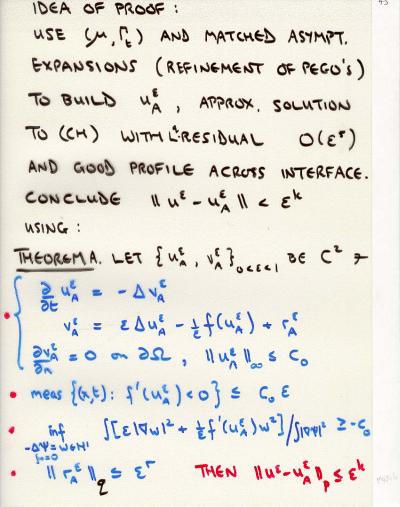 IDEA OF PROOF :
USE (μ, Γ_t) AND MATCHED ASYMPT.
EXPANSIONS (REFINEMENT OF PEGO'S)
TO BUILD u_A^ε , APPROX. SOLUTION
TO (CH) WITH L²-RESIDUAL O(ε^r)
AND GOOD PROFILE ACROSS INTERFACE.
CONCLUDE ‖u^ε - u_A^ε‖ < ε^k
USING :
THEOREM A. LET {u_A^ε, v_A^ε}_{0<ε<1} BE C²
∂/∂t u_A^ε = -Δv_A^ε
v_A^ε = εΔu_A^ε - 1/ε f(u_A^ε) + r_A^ε
∂v_A^ε/∂n = 0 on ∂Ω , ‖u_A^ε‖_∞ ≤ C_0
• meas {(x,t): f'(u_A^ε) < 0} ≤ C_0 ε
• inf ∫[ε|∇w|² + 1/ε f'(u_A^ε)w²]/∫|∇ψ|² ≥ -C_0
-Δψ = w ∈ H¹
• ‖r_A^ε‖_q ≤ ε^r THEN ‖u^ε - u_A^ε‖_p ≤ ε^k